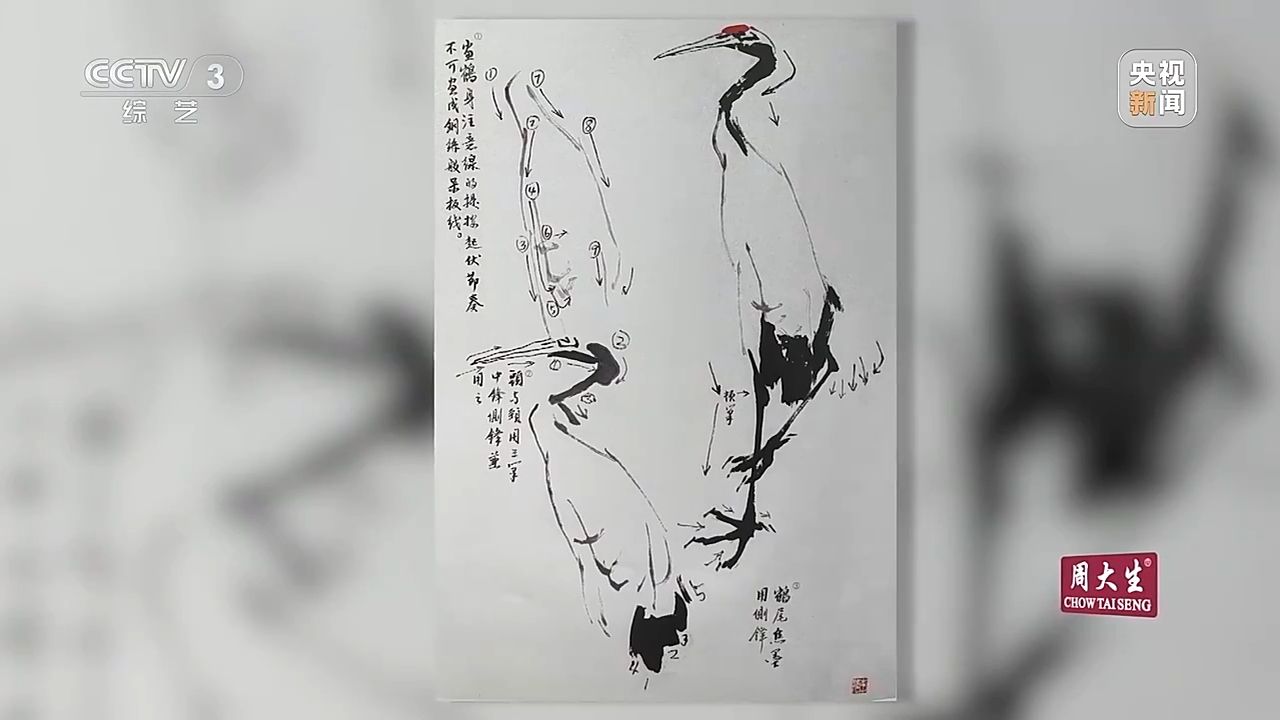 CCTV 3
综艺
央视
新闻
①画鹤身注意线的提按起伏节奏
不可画成钢丝般呆板线。
① ⑦
② ⑧
④
③ ⑥ ⑨
⑤
②
①
②頭与頸用三笔
中锋側锋兼
用之
損筆
③鶴尾焦墨
用側锋
5
3
2
4
1
周大生®
CHOW TAI SENG